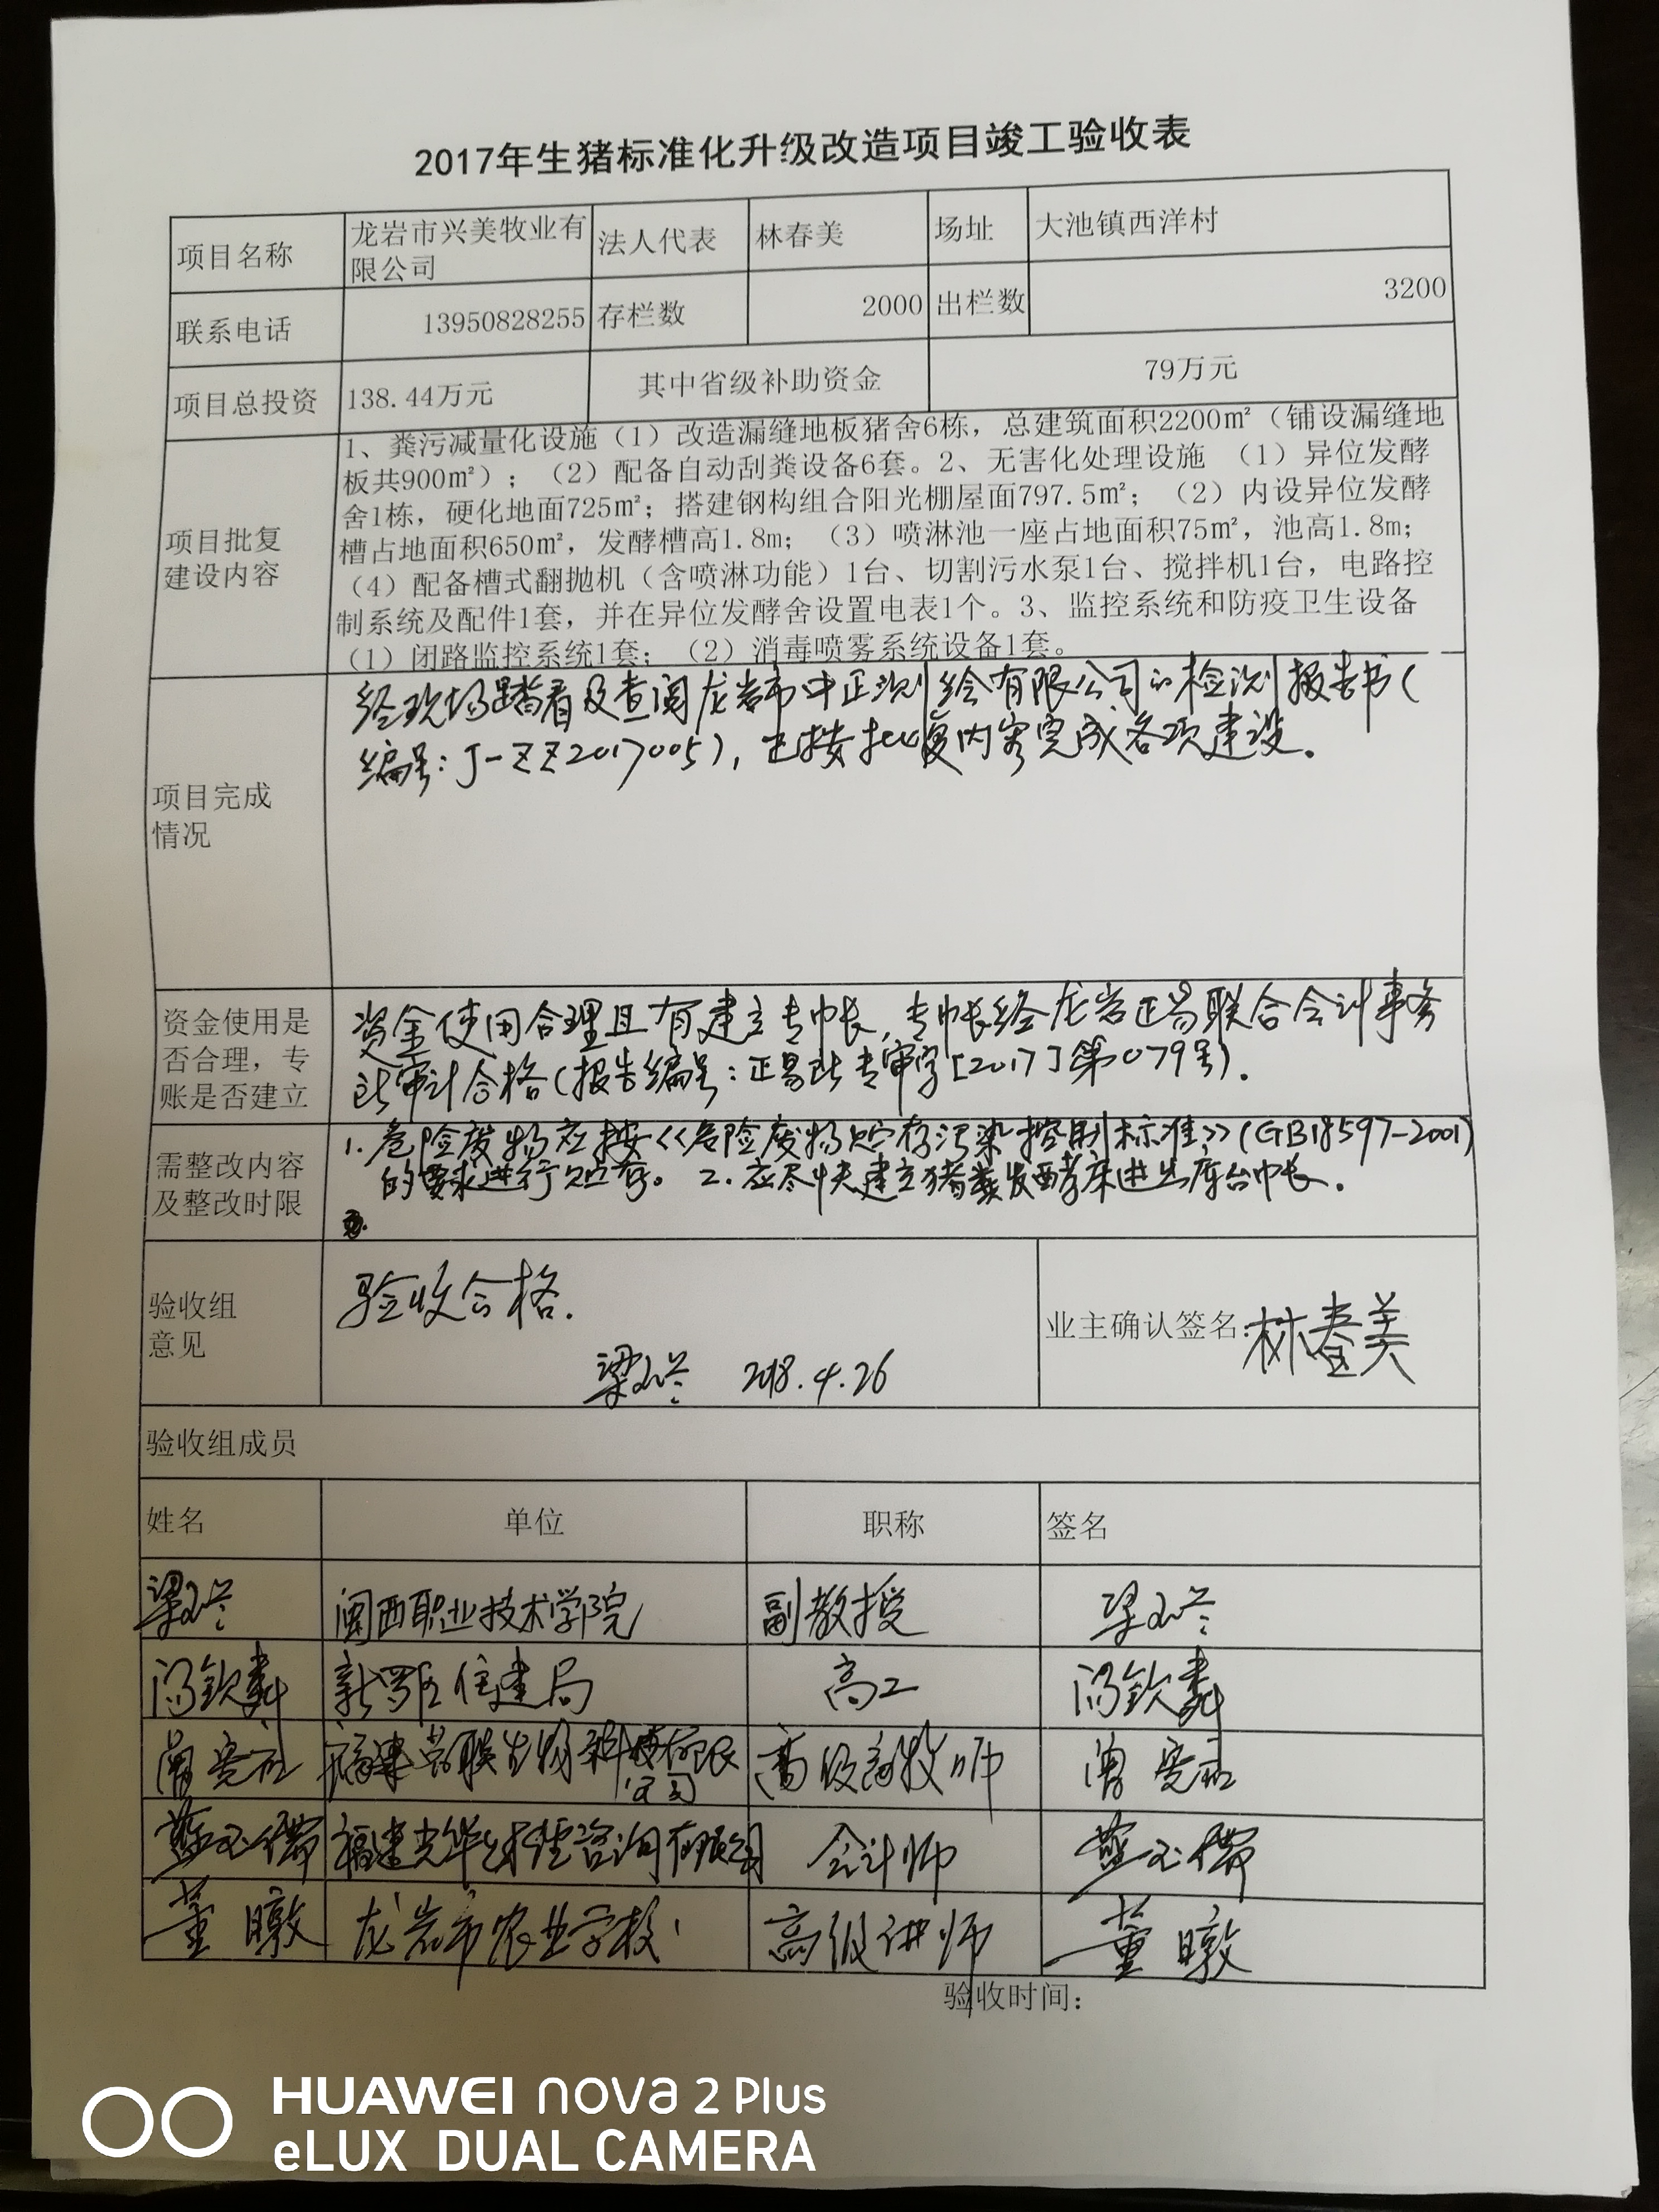 2017年生猪标准化升级改造项目竣工验收表
项目名称 龙岩市兴美牧业有限公司 法人代表 林春美 场址 大池镇西洋村
联系电话 13950828255 存栏数 2000 出栏数 3200
项目总投资 138.44万元 其中省级补助资金 79万元
项目批复
建设内容
1、粪污减量化设施（1）改造漏缝地板猪舍6栋，总建筑面积2200㎡（铺设漏缝地
板共900㎡）；（2）配备自动刮粪设备6套。2、无害化处理设施 （1）异位发酵
舍1栋，硬化地面725㎡；搭建钢构组合阳光棚屋面797.5㎡；（2）内设异位发酵
槽占地面积650㎡，发酵槽高1.8m；（3）喷淋池一座占地面积75㎡，池高1.8m；
（4）配备槽式翻抛机（含喷淋功能）1台、切割污水泵1台、搅拌机1台，电路控
制系统及配件1套，并在异位发酵舍设置电表1个。3、监控系统和防疫卫生设备
（1）闭路监控系统1套；（2）消毒喷雾系统设备1套。
项目完成
情况
经现场踏看及查阅龙岩市中正测绘有限公司的检测报告书（
编号：J-ZZ2017005），已按批复内容完成各项建设。
资金使用是
否合理，专
账是否建立
资金使用合理且有建立专帐，专帐经龙岩正昌联合会计事务
所审计合格（报告编号：正昌所专审字［2017］第079号）．
需整改内容
及整改时限
1．危险废物应按《危险废物贮存污染控制标准》（GB18597-2001）
的要求进行贮存。2．应尽快建立猪粪发酵床进出库台帐．
验收组
意见
验收合格．
梁 2018.4.26
业主确认签名：林春美
验收组成员
姓名 单位 职称 签名
梁 闽西职业技术学院 副教授 梁
钦 新罗区住建局 高工 钦
曾 福建 联生物科技有限公司 高级 师 曾
蓝 福建光华 咨询有限公司 会计师 蓝
董暾 龙岩市农业学校 高级讲师 董暾
验收时间：
HUAWEI nova 2 Plus
eLUX DUAL CAMERA